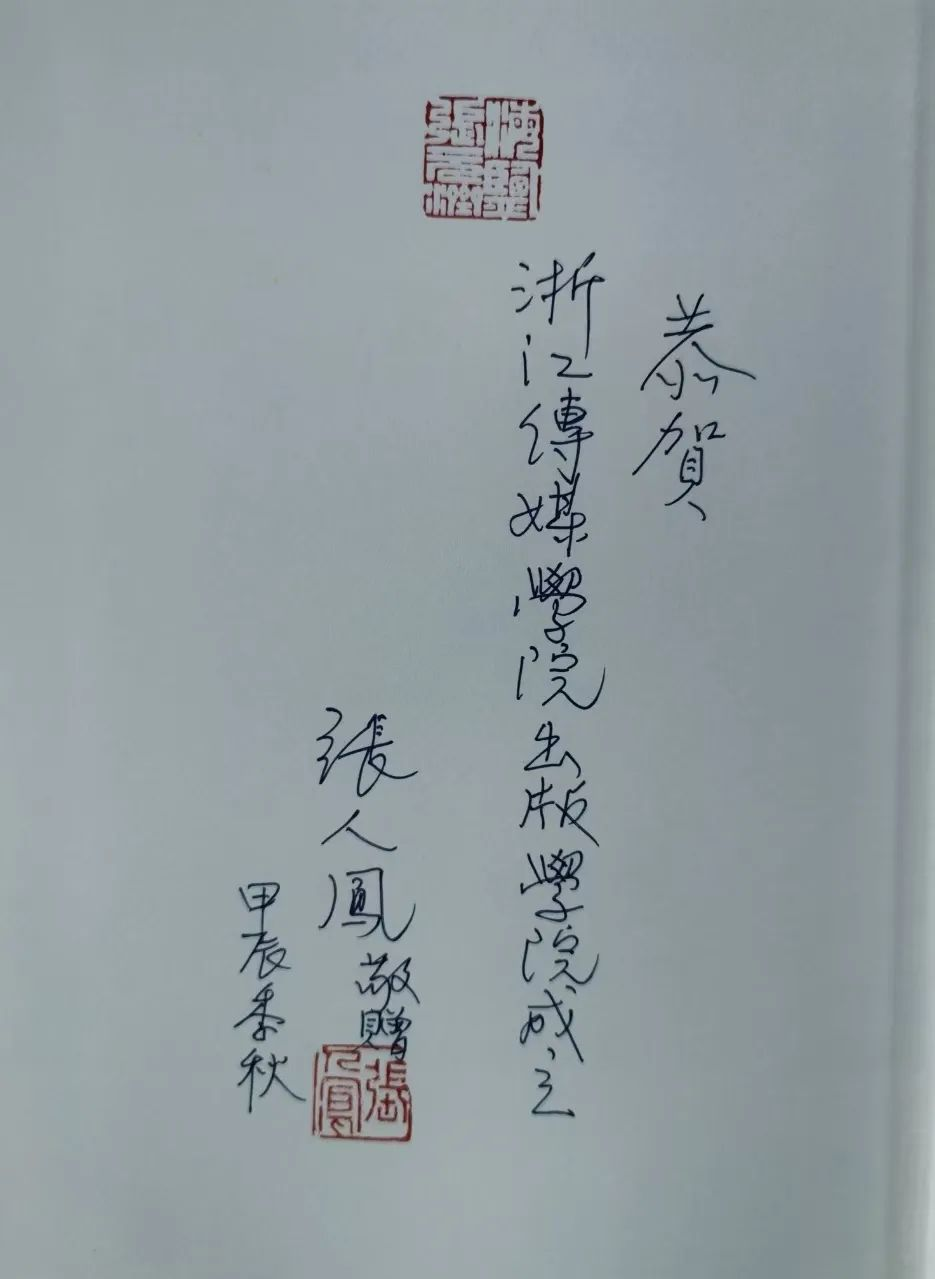 恭賀
浙江傳媒學院出版學院成立
張人鳳敬贈
甲辰季秋
張人鳳